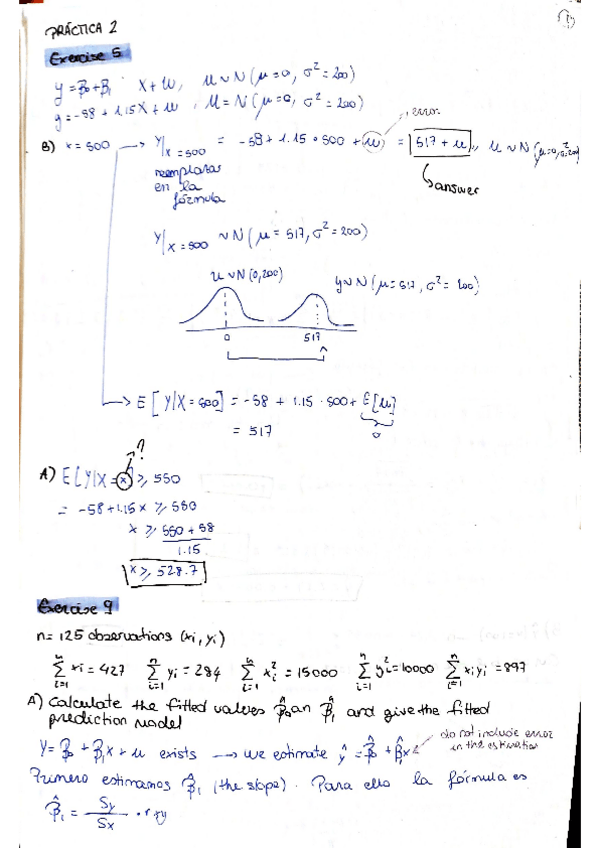 PRÁCTICA 2
Exercise 5
y = β₀ + β₁ x + u, u ~ N(μ=0, σ²=200)
y = -58 + 1.15x + u, u = N(μ=0, σ²=200)
error
B) x = 500 → y|x=500 = -58 + 1.15 · 500 + u = 517 + u, u ~ N(μ=0, σ²=200)
reemplazas
en la
fórmula
answer
y|x=500 ~ N(μ=517, σ²=200)
u ~ N(0,200)
y ~ N(μ=517, σ²=200)
0 517
→ E[Y|X=500] = -58 + 1.15 · 500 + E[u]
0
= 517
?
A) E[Y|X=x] ≥ 550
= -58 + 1.15x ≥ 550
x ≥ 550 + 58
1.15
x ≥ 528.7
Exercise 9
n = 125 observations (xi, yi)
∑ⁿᵢ₌₁ xi = 427 ∑ⁿᵢ₌₁ yi = 284 ∑ⁿᵢ₌₁ xi² = 15000 ∑ⁿᵢ₌₁ yi² = 10000 ∑ⁿᵢ₌₁ xiyi = 897
A) Calculate the fitted values β̂₀ an β̂₁ and give the fitted
prediction model
do not include error
in the estimation
Y = β₀ + β₁x + u exists → we estimate ŷ = β̂₀ + β̂₁x
Primero estimamos β̂₁ (the slope). Para ello la fórmula es
β̂₁ = Sy/Sx · rxy